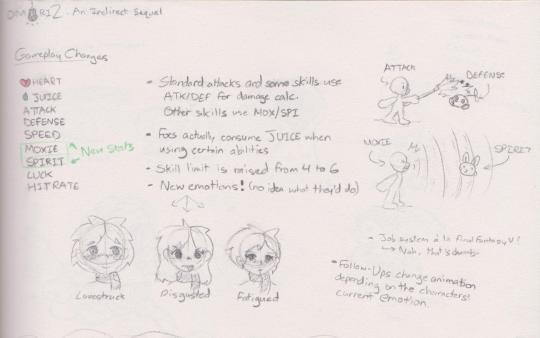 OMORI 2 - An Indirect Sequel
Gameplay Changes
HEART
JUICE
ATTACK
DEFENSE
SPEED
MOXIE
SPIRIT
LUCK
HITRATE
New Stats
- Standard attacks and some skills use
ATK/DEF for damage calc.
Other skills use MOX/SPI
- Foes actually consume JUICE when
using certain abilities
- Skill limit is raised from 4 to 6
- New emotions! (no idea what they'd do)
Lovestruck
Disgusted
Fatigued
ATTACK
DEFENSE
MOXIE
SPIRIT
- Job system à la Final Fantasy V!
→ Nah, that's dumb
- Follow-Ups change animation
depending on the characters'
current emotion.